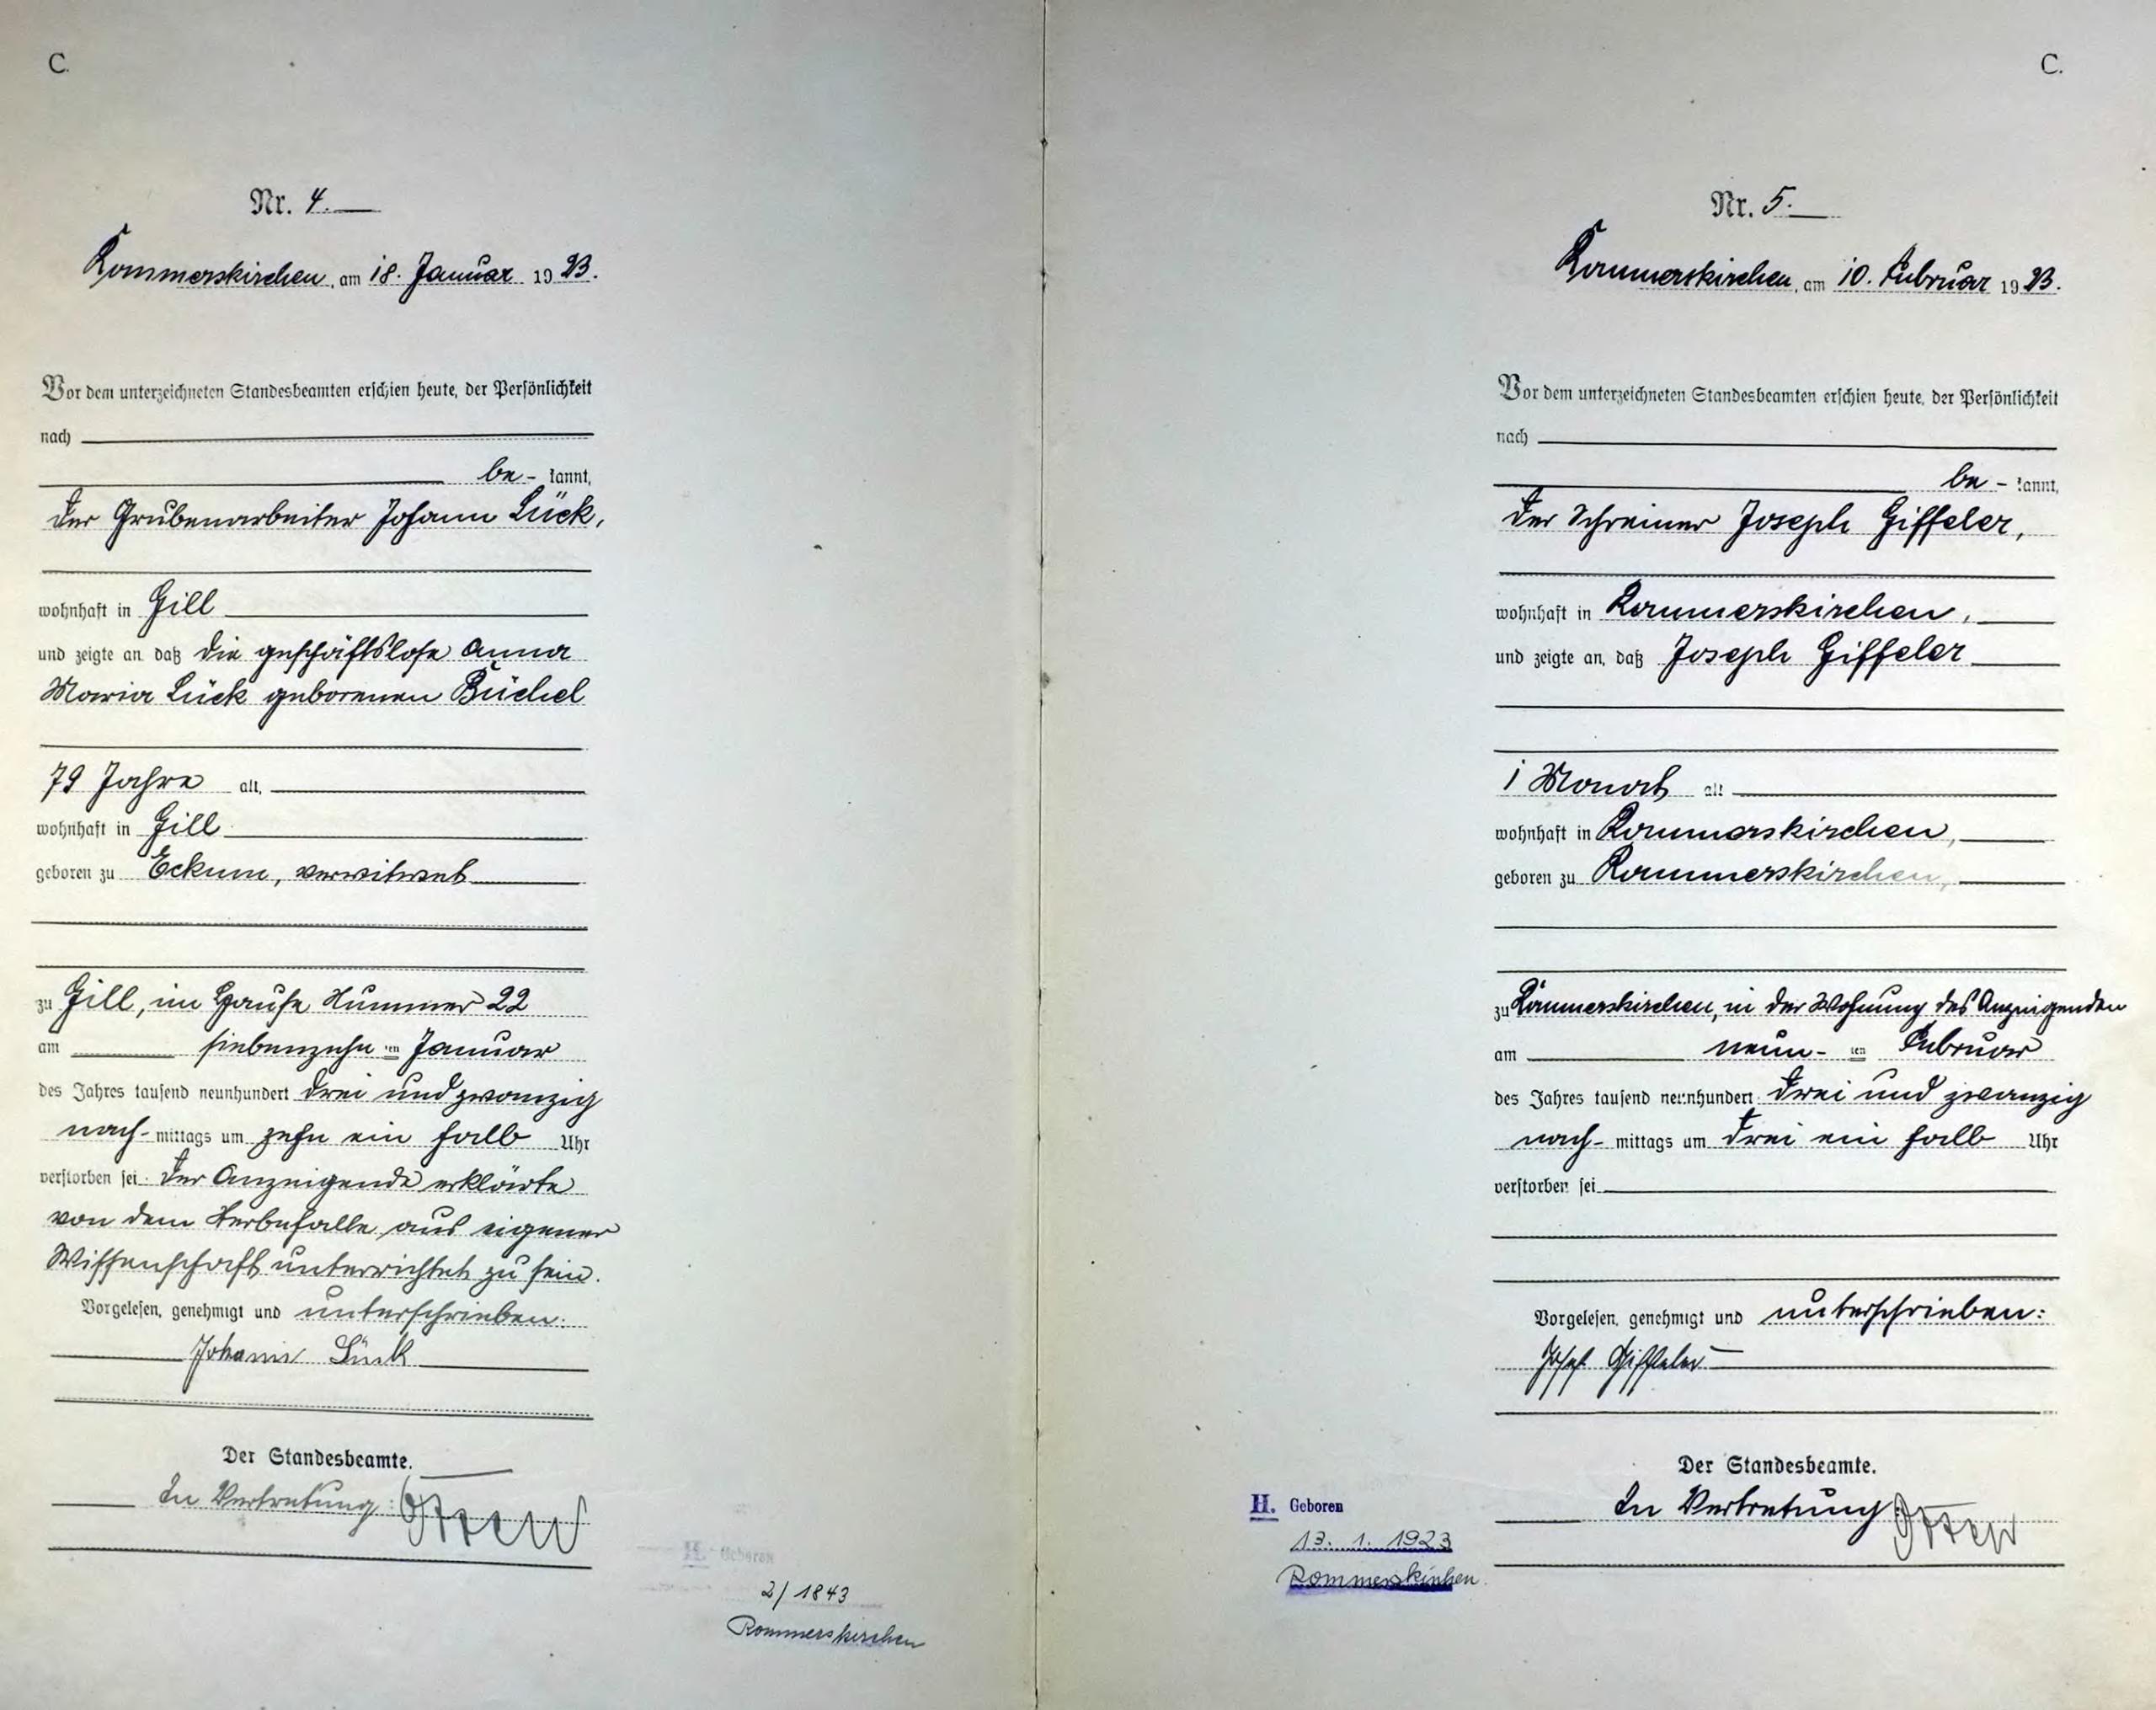 C.
Nr. 4.
Rommerskirchen, am 18. Januar 1923.
Vor dem unterzeichneten Standesbeamten erschien heute, der Persönlichkeit
nach
be- kannt,
der Grubenarbeiter Johann Lück,
wohnhaft in Gill
und zeigte an, daß die geschäftslose Anna
Maria Lück geborenen Büchel
79 Jahre alt,
wohnhaft in Gill
geboren zu Eckum, verwitwet
zu Gill, im Hause Nummer 22
am siebenzehn ten Januar
des Jahres tausend neunhundert drei und zwanzig
nach- mittags um zehn ein halb Uhr
verstorben sei. Der Anzeigende erklärte
von dem Sterbefalle aus eigener
Wissenschaft unterrichtet zu sein.
Vorgelesen, genehmigt und unterschrieben:
Johann Lück
Der Standesbeamte.
In Vertretung:
H. Geboren
2/1843
Rommerskirchen
C.
Nr. 5.
Rommerskirchen, am 10. Februar 1923.
Vor dem unterzeichneten Standesbeamten erschien heute, der Persönlichkeit
nach
be- kannt,
der Schreiner Joseph Giffeler,
wohnhaft in Rommerskirchen,
und zeigte an, daß Joseph Giffeler
1 Monat alt
wohnhaft in Rommerskirchen,
geboren zu Rommerskirchen,
zu Rommerskirchen, in der Wohnung des Anzeigenden
am neun- ten Februar
des Jahres tausend neunhundert drei und zwanzig
nach- mittags um drei ein halb Uhr
verstorben sei
Vorgelesen, genehmigt und unterschrieben:
Josef Giffeler
Der Standesbeamte.
In Vertretung
H. Geboren
13. 1. 1923
Rommerskirchen